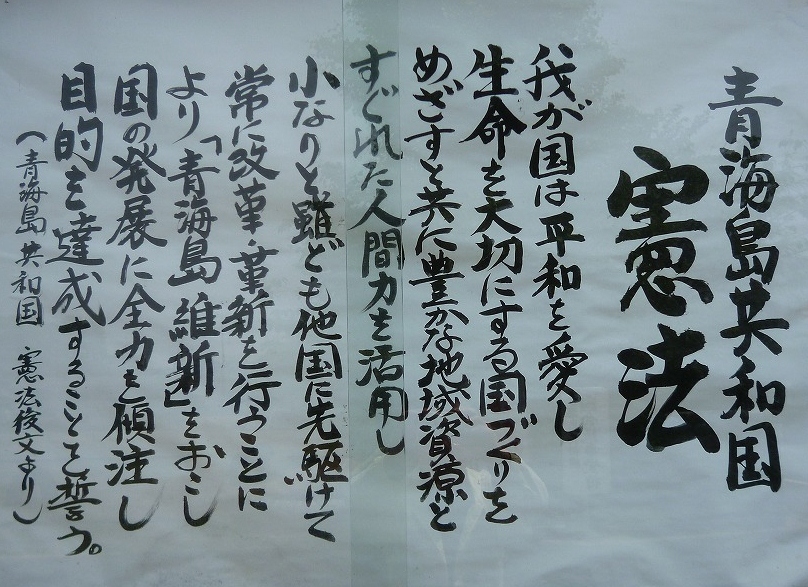 青海島共和国
憲法
我が国は平和を愛し
生命を大切にする国づくりを
めざすと共に豊かな地域資源と
すぐれた人間力を活用し
小なりと雖ども他国に先駆けて
常に改革・革新を行うことに
より「青海島維新」をおこし
国の発展に全力を傾注し
目的を達成することを誓う。
(青海島共和国 憲法後文より)